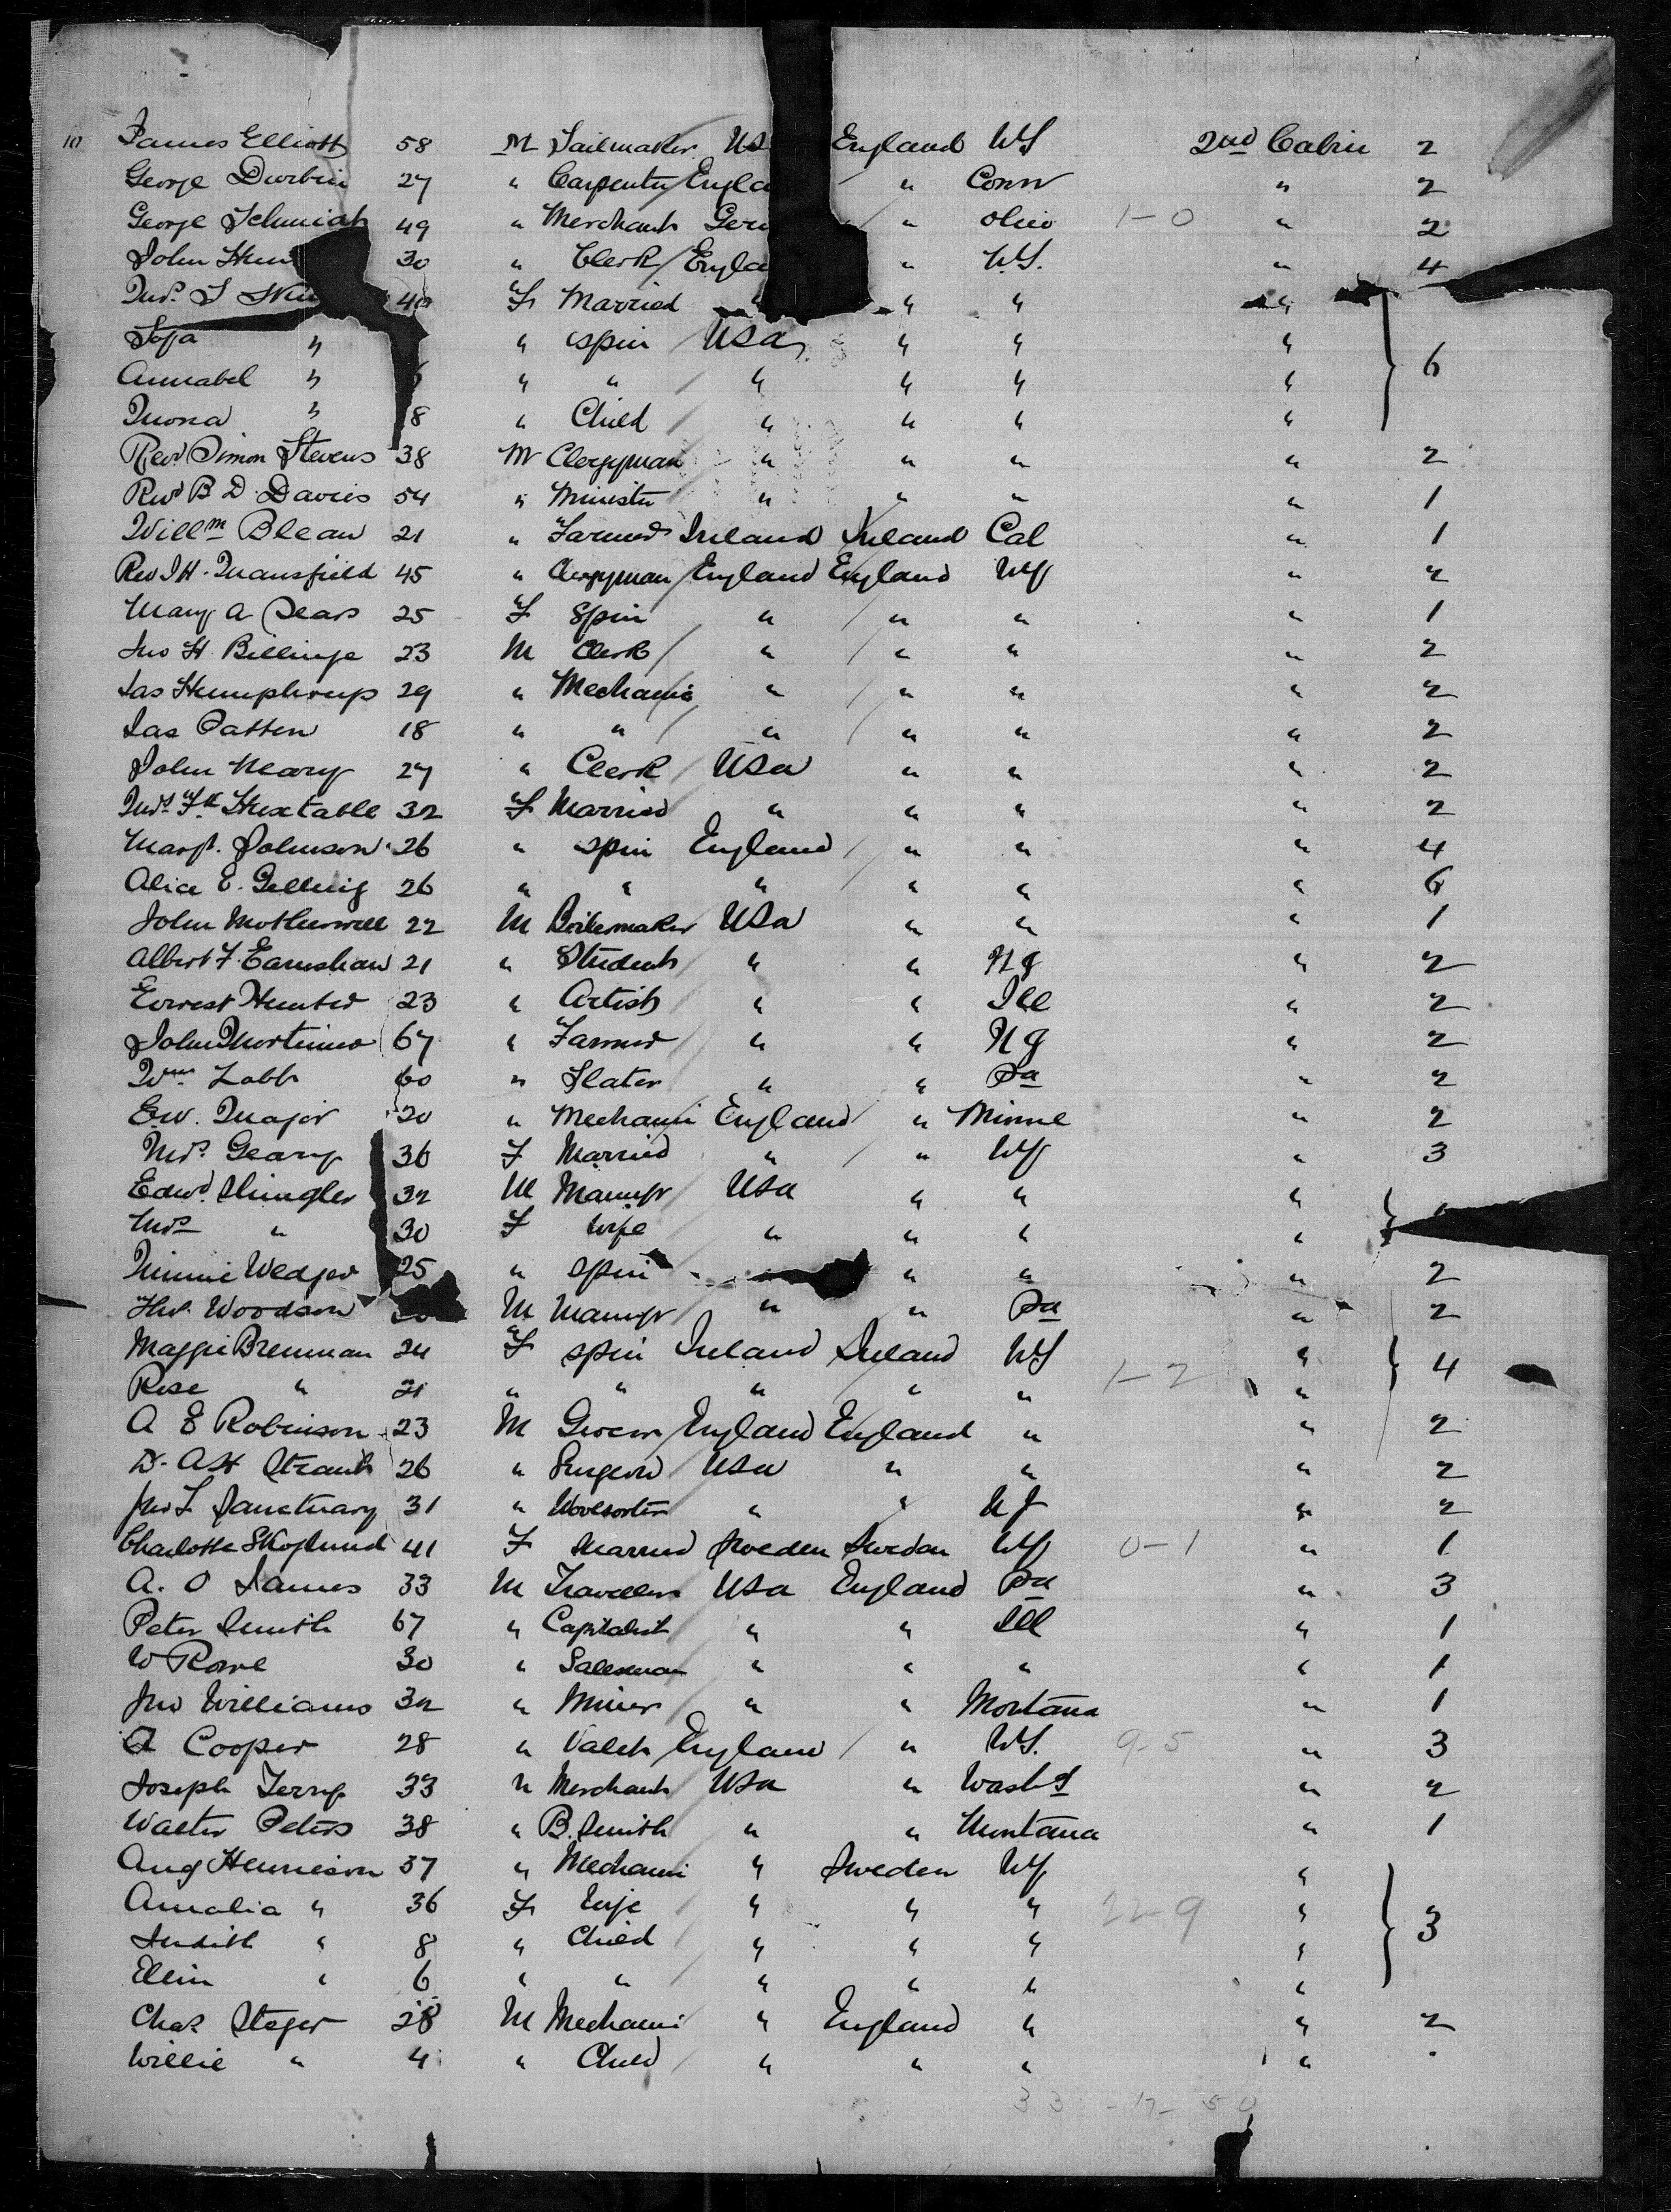 10 James Elliott 58 M Sailmaker US England NY 2nd Cabin 2
George Durbin 27 " Carpenter Engla " Conn " 2
George Schmidt 49 " Merchant Ger " Ohio 1-0 " 2
John Hun 30 " Clerk Engla " NY. " 4
Mrs. J 40 F Married " " " "
" " spin USA " " "
Annabel " " " " " " " 6
Mona " 8 " Child " " " "
Revd. Simon Stevens 38 M Clergyman " " " " 2
Revd B D. Davies 54 " Minister " " " " 1
Willm Blean 21 " Farmer Ireland Ireland Cal " 1
Rev J H. Mansfield 45 " Clergyman England England NY " 2
Mary A Sears 25 F Spin " " " " 1
Jno H. Billinge 23 M Clerk " " " " 2
Jas Humphreys 29 " Mechanic " " " " 2
Jas Patten 18 " " " " " " 2
John Neary 27 " Clerk USA " " " 2
Mrs. Fk Huxtable 32 F Married " " " " 2
Margt. Johnson 26 " spin England " " " 4
Alice E. 26 " " " " " " 6
John Motherwell 22 M Boilermaker USA " " " 1
Albert F. Earnshaw 21 " Student " " NJ " 2
Everest Hunter 23 " Artist " " Ill " 2
John Mortimer 67 " Farmer " " NJ " 2
Wm Labb 60 " Slater " " Pa " 2
E.W. Major 20 " Mechanic England " Minne " 2
Mrs. Geary 36 F Married " " NY " 3
Edwd. Shingler 32 M Manufr USA " " "
Mrs " 30 F Wife " " " "
Minnie Wedger 25 " spin " " " 2
Woodson M Manufr " " Pa " 2
Maggie Brennan 24 F spin Ireland Ireland NY " 4
Rose " 21 " " " " " 1-2 "
A E Robinson 23 M Grocer England England " " 2
Dr. A H Straub 26 " Surgeon USA " " " 2
Jno L Sanctuary 31 " Woolsorter " " NJ " 2
Charlotte Skoglund 41 F Married Sweden Sweden NY 0-1 " 1
A. O James 33 M Traveller USA England Pa " 3
Peter Smith 67 " Capitalist " " Ill " 1
W Rowe 30 " Salesman " " " " 1
Jno Williams 32 " Miner " " Montana " 1
A Cooper 28 " Valet England " NY. 9-5 " 3
Joseph Terry 33 " Merchant USA " Washn " 2
Walter Peters 38 " B. Smith " " Montana " 1
Aug Hennieson 37 " Mechanic " Sweden NY "
Amalia " 36 F Wife " " " 22-9 " 3
Judith " 8 " Child " " " "
Ellin " 6 " " " " " "
Chas Steger 28 M Mechanic " England " " 2
Willie " 4 " Child " " " "
33 - 17 - 50